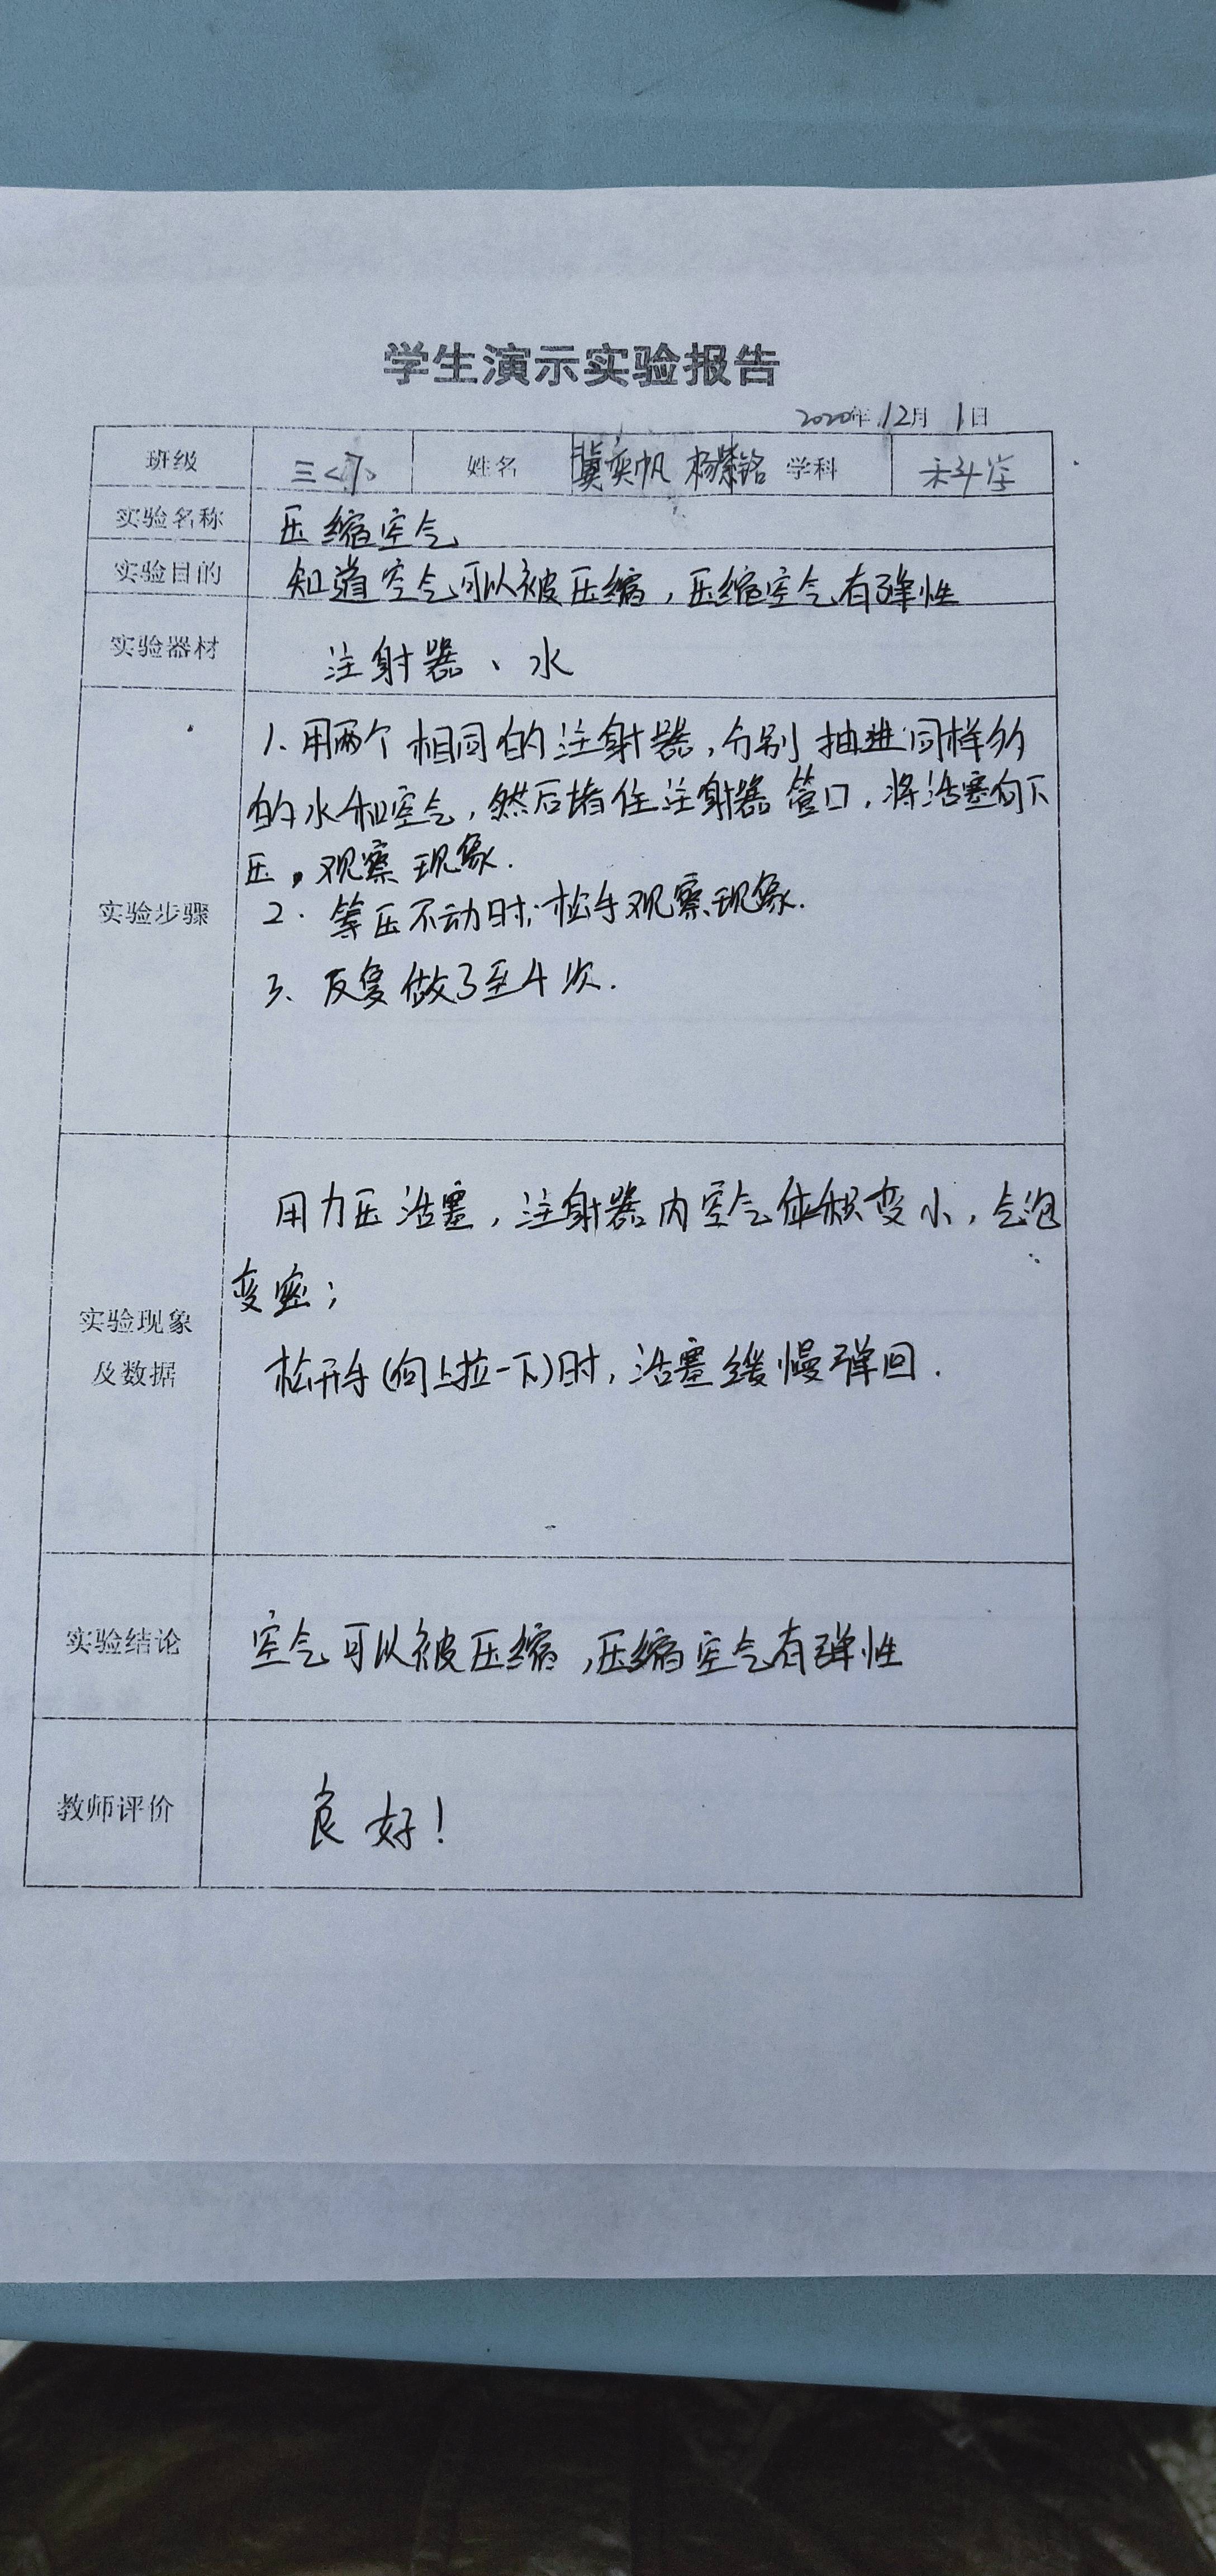 学生演示实验报告
2020年12月1日
班级 三<7> 姓名 冀奕帆 杨紫铭 学科 科学
实验名称 压缩空气
实验目的 知道空气可以被压缩，压缩空气有弹性
实验器材 注射器、水
1、用两个相同的注射器，分别抽进同样多
的水和空气，然后堵住注射器管口，将活塞向下
压，观察现象.
实验步骤 2. 等压不动时，松手观察现象.
3、反复做3至4次.
用力压活塞，注射器内空气体积变小，气泡
变密；
实验现象
及数据 松开手(向上拉一下)时，活塞缓慢弹回.
实验结论 空气可以被压缩，压缩空气有弹性
教师评价 良好！